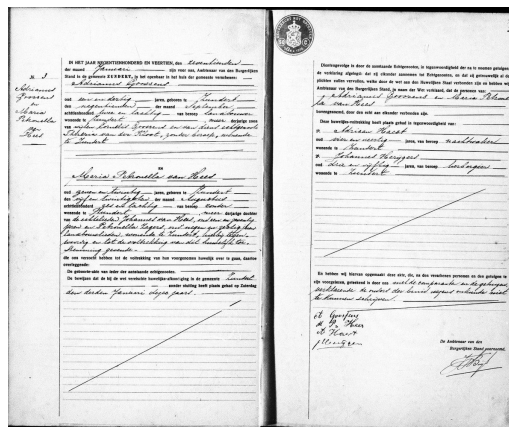 N. 3
Adrianus
Goossens
en
Maria
Petronella
van
Hees
IN HET JAAR NEGENTIENHONDERD EN VEERTIEN, den zeventienden
der maand Januari zijn voor ons, Ambtenaar van den Burgerlijken
Stand in de gemeente ZUNDERT, in het openbaar in het huis der gemeente verschenen:
Adrianus Goossens
oud een en dertig jaren, geboren te Zundert
den negentienden der maand September
achttienhonderd twee en tachtig van beroep landbouwer
wonende te Zundert meerderjarige zoon
van wijlen Cornelis Goossens en van diens echtgenoote
zonder beroep, wonende
te Zundert
en
Maria Petronella van Hees
oud zeven en twintig jaren, geboren te Zundert
den vijf en twintigsten der maand Augustus
achttienhonderd zes en tachtig van beroep zonder
wonende te Zundert meerderjarige dochter
van de echtelieden Johannes van Hees, oud
jaren en Petronella Zagers, oud negen en zestig jaren
landbouwlieden, wonende te Zundert, hierbij tegen-
woordig en tot de voltrekking van dit huwelijk toe-
stemming gevende
die ons verzocht hebben tot de voltrekking van hun voorgenomen huwelijk over te gaan, daartoe
overleggende:
De geboorte-akten van ieder der aanstaande echtgenooten.
De bewijzen dat de bij de wet vereischte huwelijks-afkondiging in de gemeente Zundert
zonder stuiting heeft plaats gehad op Zaterdag
den derden Januari dezes jaars.
Dientengevolge is door de aanstaande Echtgenooten, in tegenwoordigheid der na te noemen getuigen,
de verklaring afgelegd: dat zij elkander aannemen tot Echtgenooten, en dat zij getrouwelijk al de
plichten zullen vervullen, welke door de wet aan den Huwelijken Staat verbonden zijn en hebben wij
Ambtenaar van den Burgerlijken Stand, in naam der Wet verklaard, dat de personen van:
Adrianus Goossens en Maria Petronel-
la van Hees
bovengenoemd, door den echt aan elkander verbonden zijn.
Deze huwelijks-voltrekking heeft plaats gehad in tegenwoordigheid van:
Adriaan Havat
oud vier en veertig jaren, van beroep nachtwaker
wonende te Zundert
Johannes Herygers
oud drie en vijftig jaren, van beroep
wonende te Zundert
En hebben wij hiervan opgemaakt deze akte, die, na den verschenen personen en den getuigen te
zijn voorgelezen, geteekend is door ons met de comparanten en de getuigen,
verklarende de ouders der bruid wegens onkunde niet
te kunnen schrijven.
A Goossens
M P v Hees
A Havat
De Ambtenaar van den
Burgerlijken Stand voornoemd,